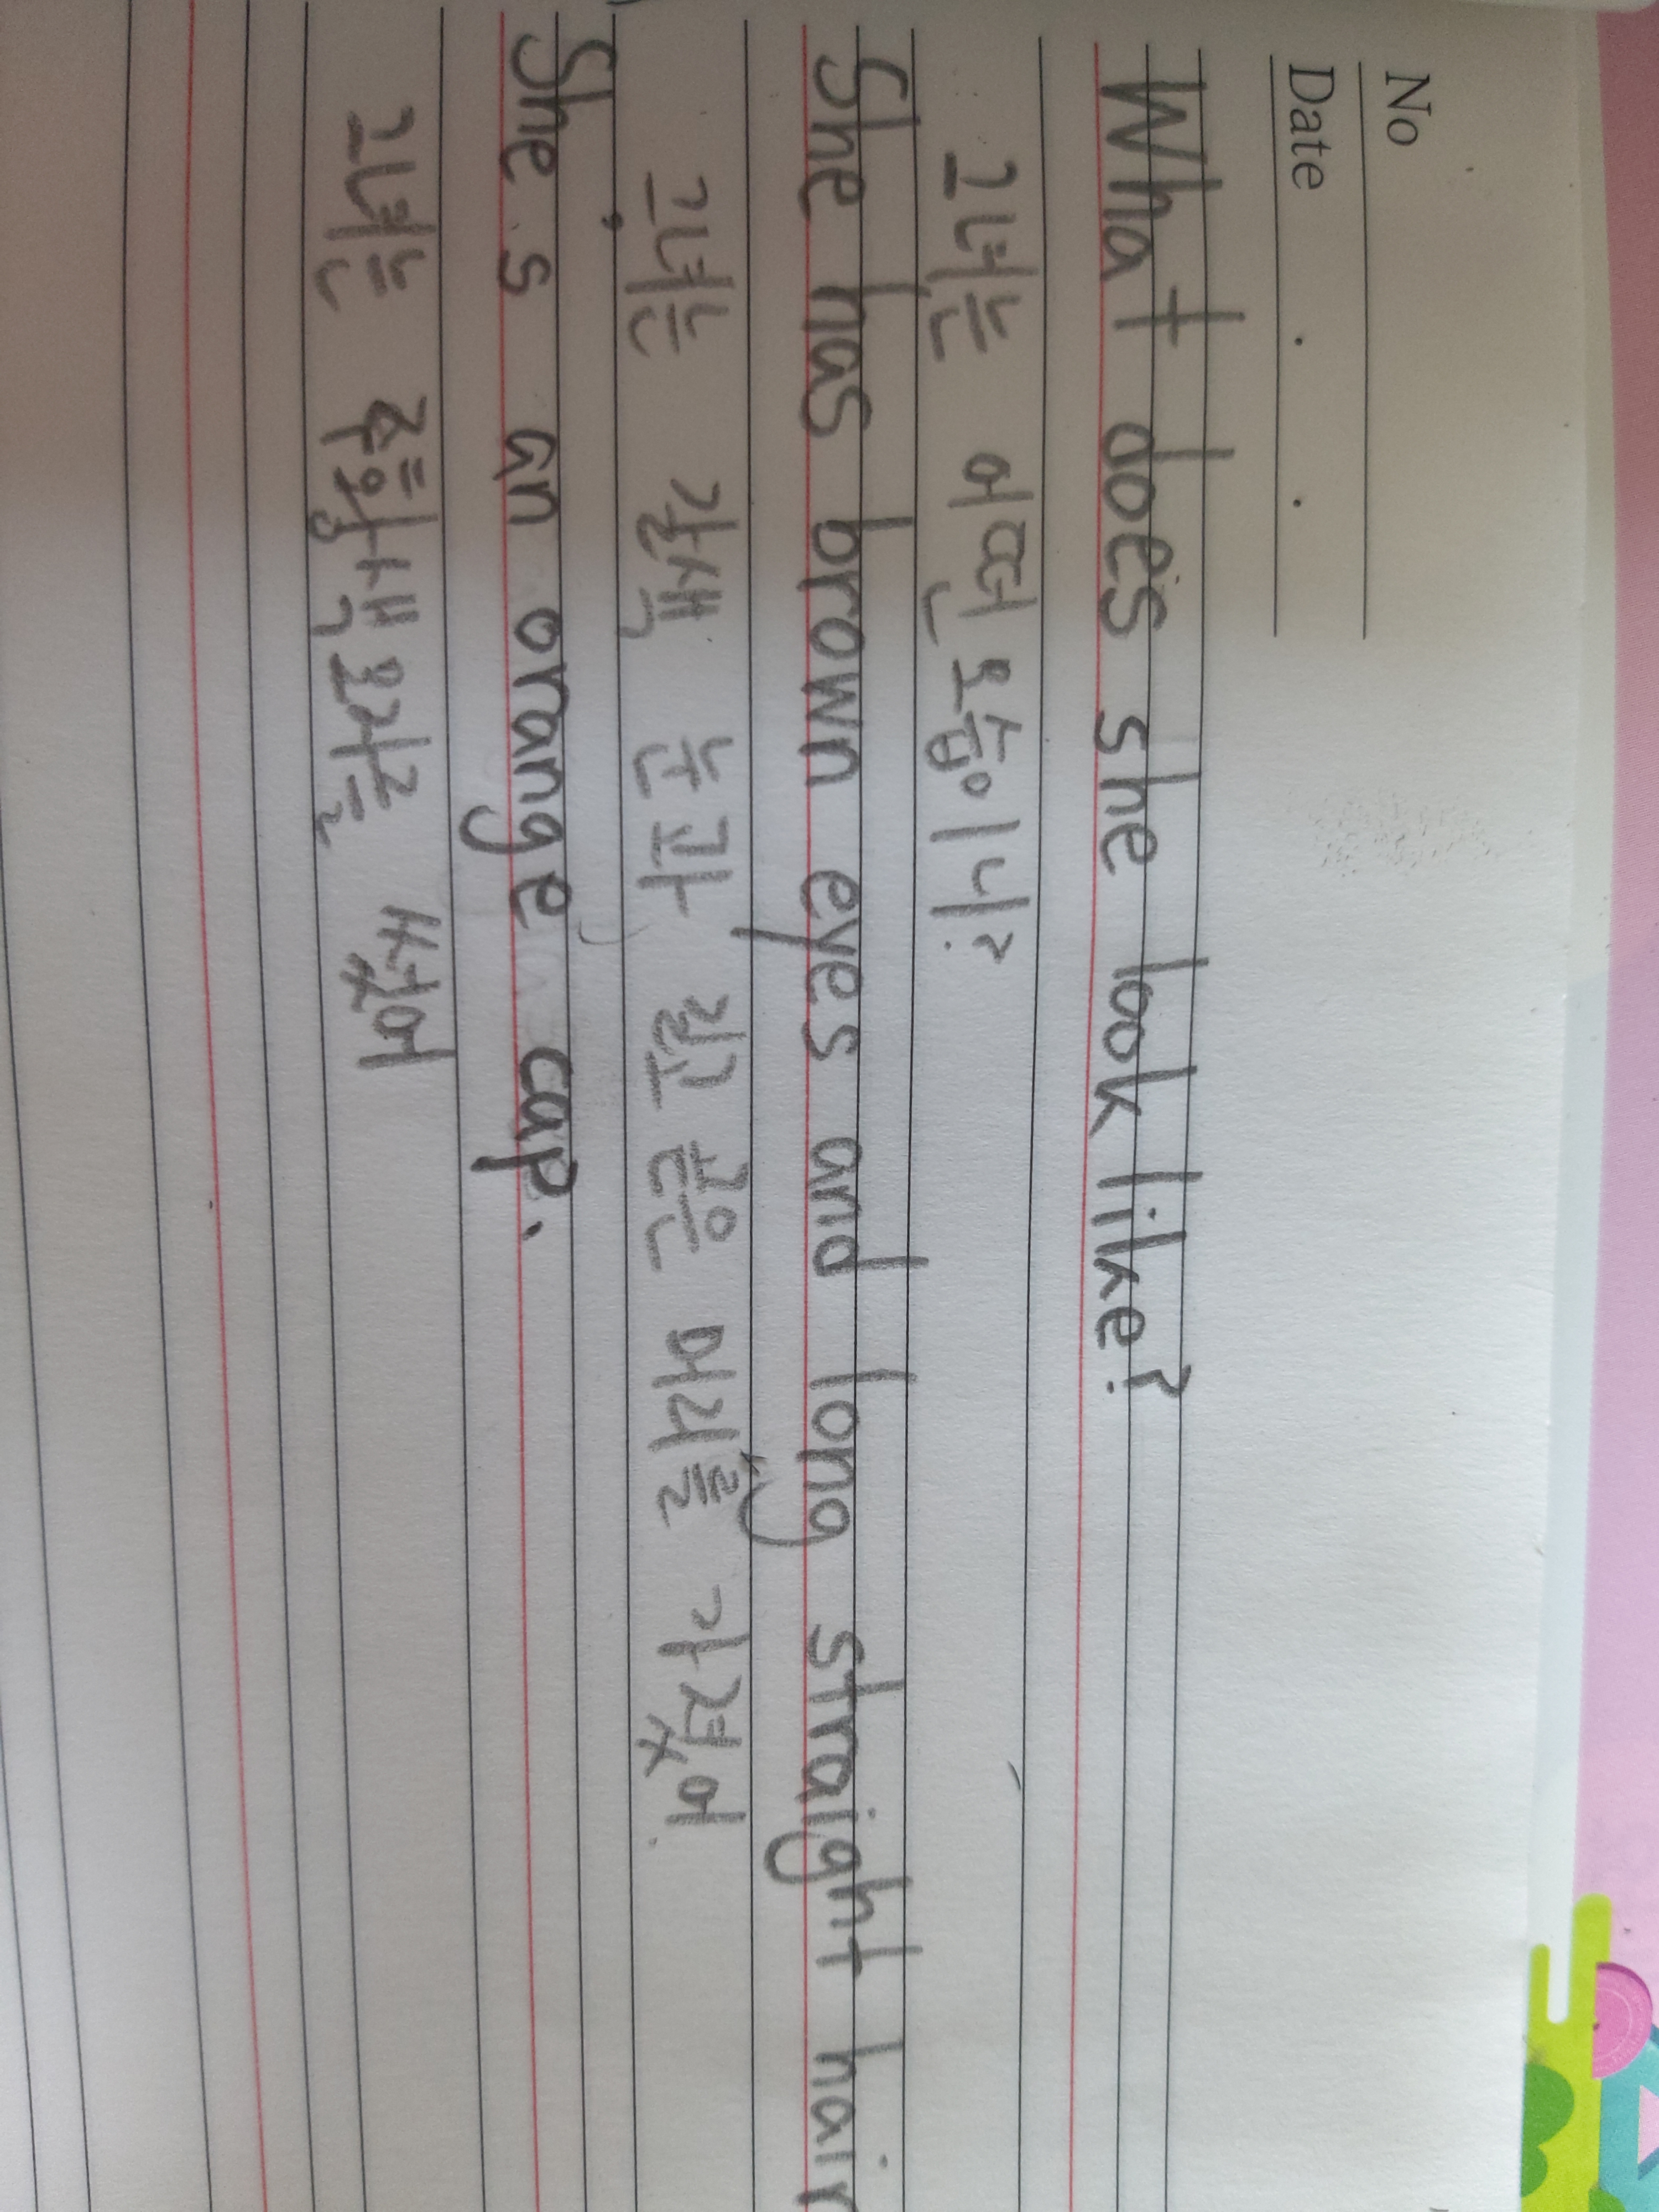 No
Date . .
What does she look like?
그녀는 어떤 모습이니?
She has brown eyes and long straight hair
그녀는 갈색 눈과 길고 곧은 머리를 가졌어.
She's an orange cap.
그녀는 주황색 모자를 썼어